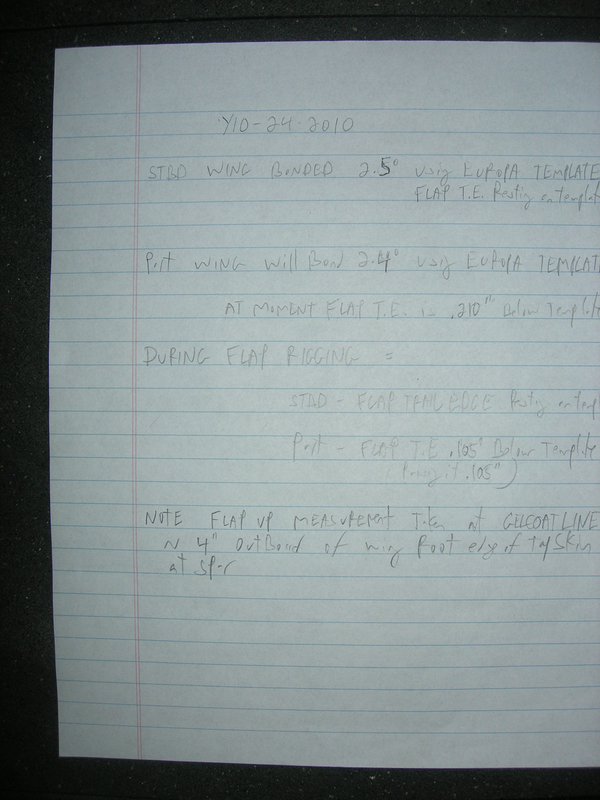 Y10-24-2010
STBD WING BONDED 2.5° using EUROPA TEMPLATE
FLAP T.E. Resting on templat
Port WING Will Bond 2.4° using EUROPA TEMPLAT
AT MOMENT FLAP T.E. is .210" Below Template
DURING FLAP RIGGING =
STBD - FLAP TRAIL EDGE Resting on templ
Port - FLAP T.E .105" Below Template
.105")
NOTE FLAP UP MEASUREMENT Taken at GELCOAT LINE
~ 4" OutBoard of wing Root edge of topSkin
at Spar